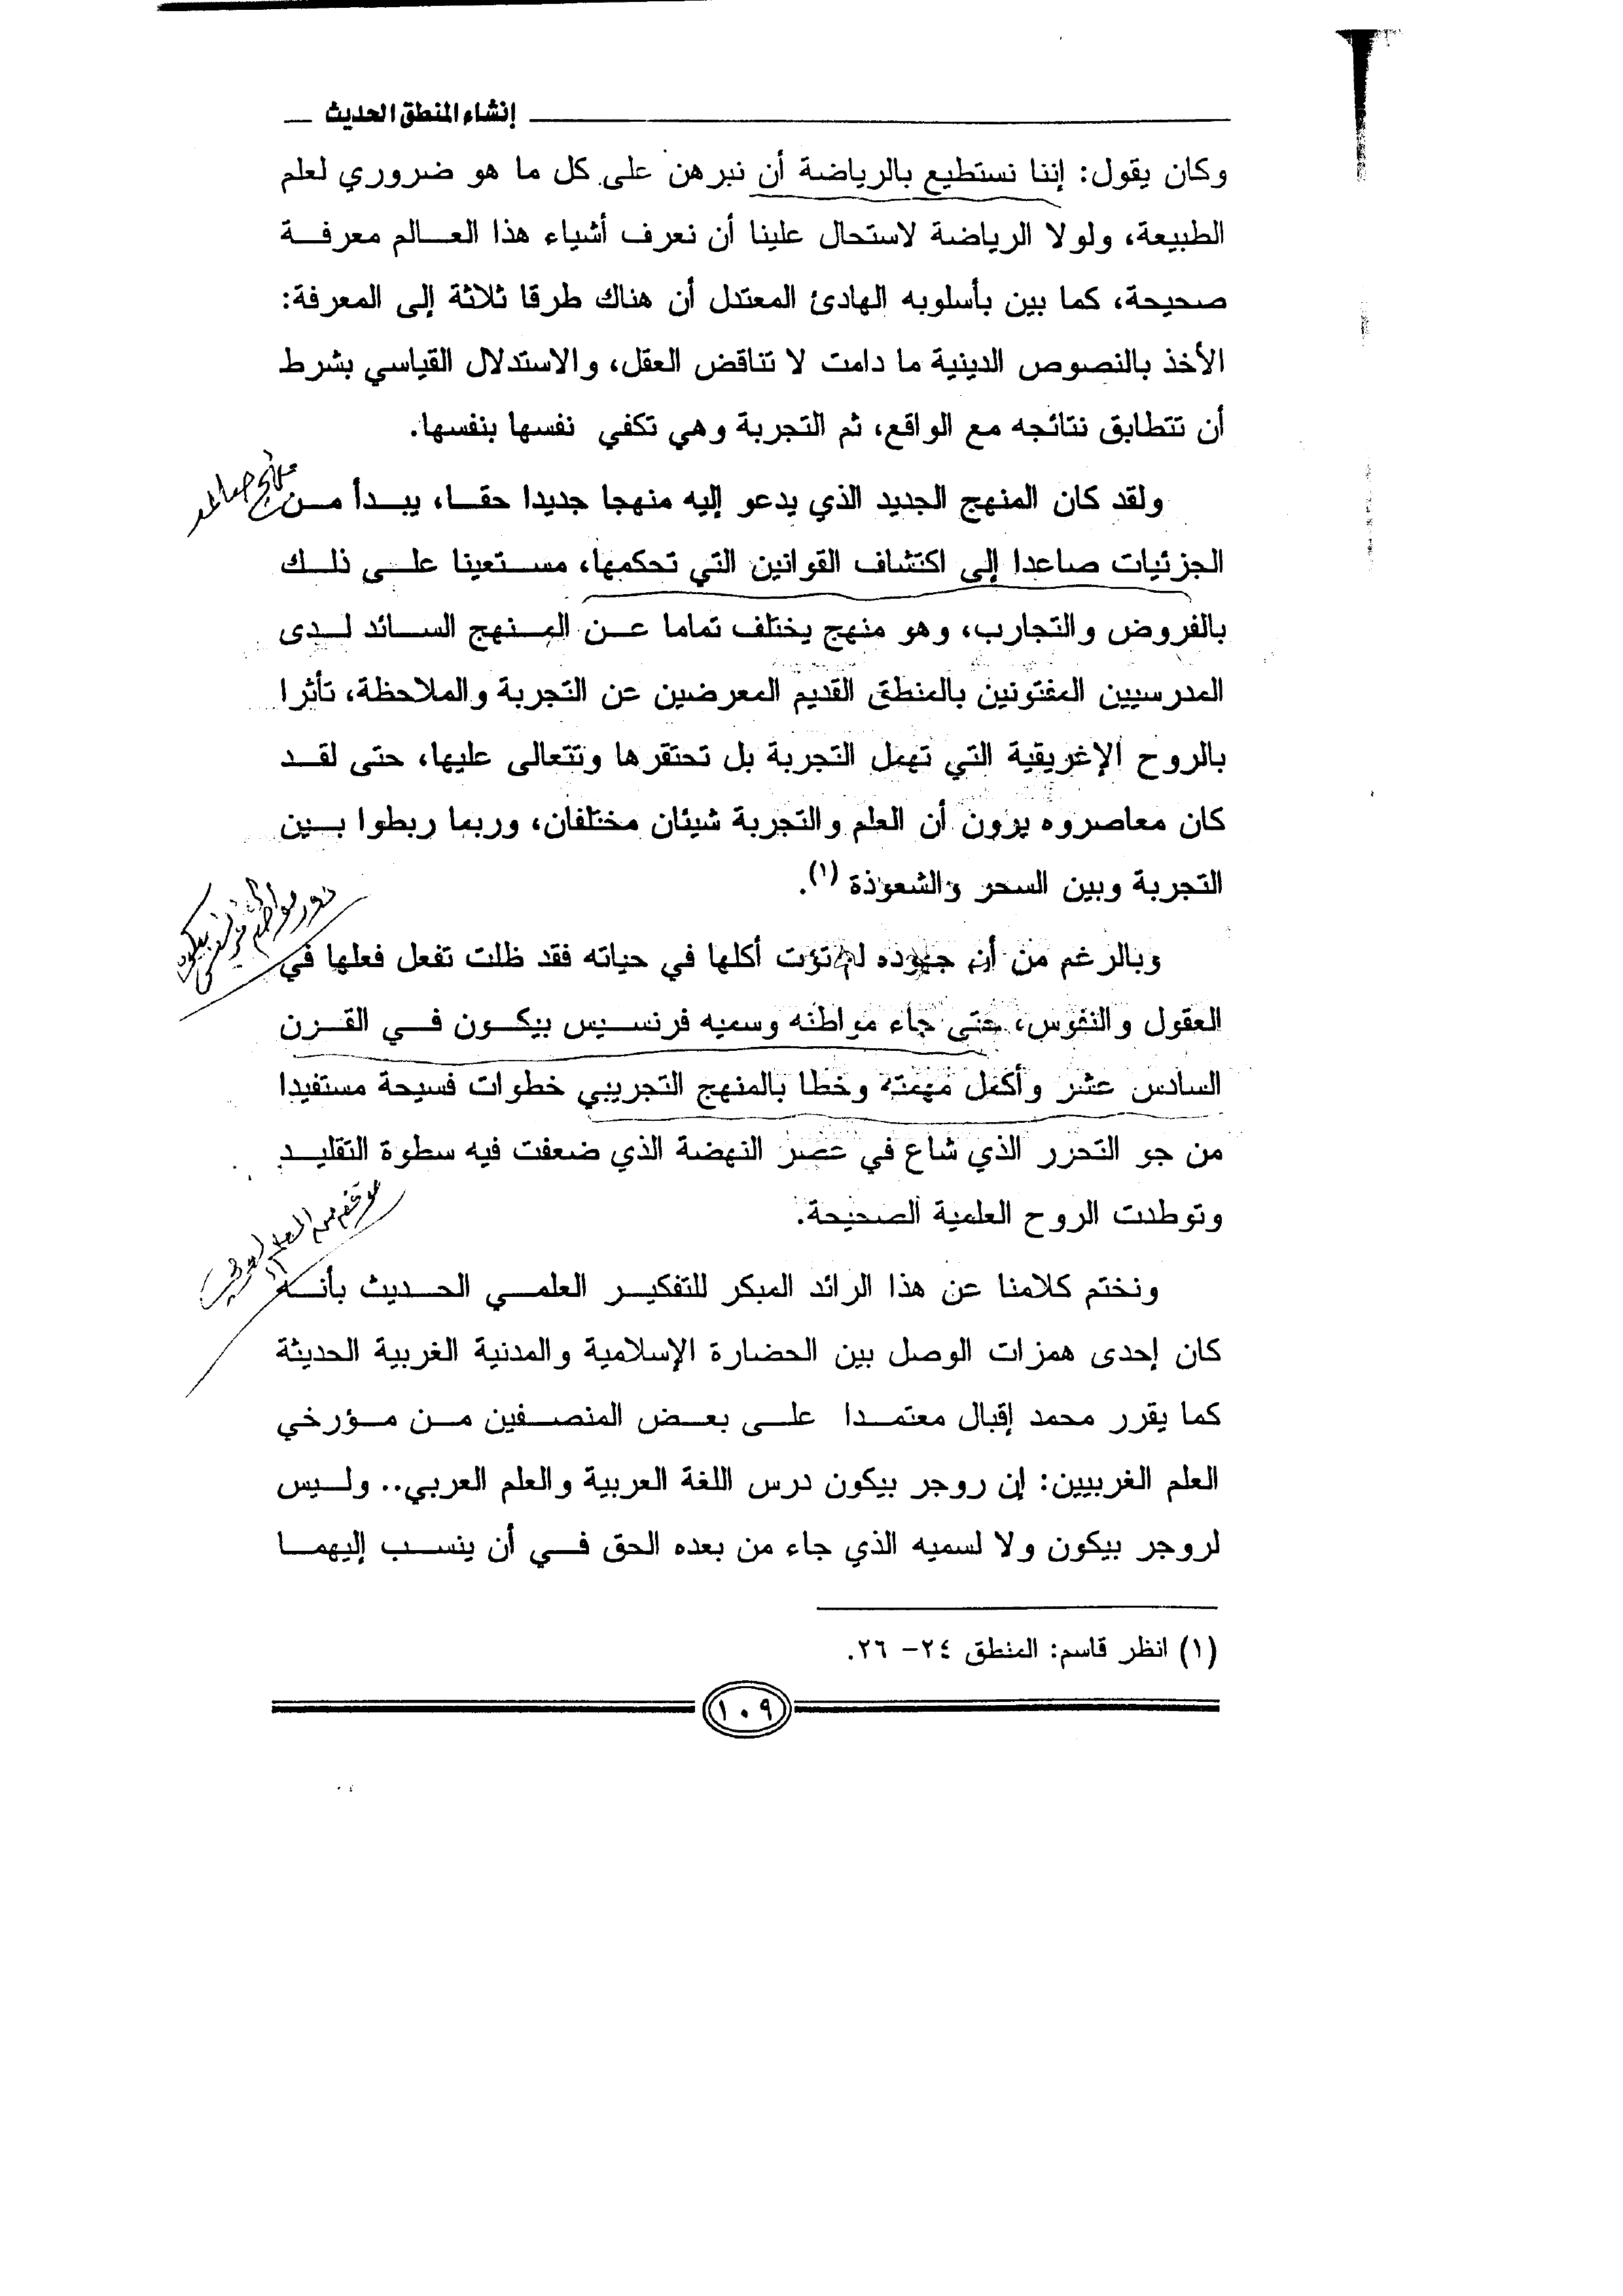 إنشاء المنطق الحديث
وكان يقول: إننا نستطيع بالرياضة أن نبرهن على كل ما هو ضروري لعلم
الطبيعة، ولولا الرياضة لاستحال علينا أن نعرف أشياء هذا العالم معرفة
صحيحة، كما بين بأسلوبه الهادئ المعتدل أن هناك طرقا ثلاثة إلى المعرفة:
الأخذ بالنصوص الدينية ما دامت لا تناقض العقل، والاستدلال القياسي بشرط
أن تتطابق نتائجه مع الواقع، ثم التجربة وهي تكفي نفسها بنفسها.
ولقد كان المنهج الجديد الذي يدعو إليه منهجا جديدا حقا، يبدأ من
الجزئيات صاعدا إلى اكتشاف القوانين التي تحكمها، مستعينا على ذلك
بالفروض والتجارب، وهو منهج يختلف تماما عن المنهج السائد لدى
المدرسيين المفتونين بالمنطق القديم المعرضين عن التجربة والملاحظة، تأثرا
بالروح الإغريقية التي تهمل التجربة بل تحتقرها وتتعالى عليها، حتى لقد
كان معاصروه يرون أن العلم والتجربة شيئان مختلفان، وربما ربطوا بين
التجربة وبين السحر والشعوذة (١).
وبالرغم من أن جهوده لم تؤت أكلها في حياته فقد ظلت تفعل فعلها في
العقول والنفوس، حتى جاء مواطنه وسميه فرنسيس بيكون في القرن
السادس عشر وأكمل مهمته وخطا بالمنهج التجريبي خطوات فسيحة مستفيدا
من جو التحرر الذي شاع في عصر النهضة الذي ضعفت فيه سطوة التقليد
وتوطدت الروح العلمية الصحيحة.
ونختم كلامنا عن هذا الرائد المبكر للتفكير العلمي الحديث بأنه
كان إحدى همزات الوصل بين الحضارة الإسلامية والمدنية الغربية الحديثة
كما يقرر محمد إقبال معتمدا على بعض المنصفين من مؤرخي
العلم الغربيين: إن روجر بيكون درس اللغة العربية والعلم العربي.. وليس
لروجر بيكون ولا لسميه الذي جاء من بعده الحق في أن ينسب إليهما
(١) انظر قاسم: المنطق ٢٤- ٢٦.
١٠٩